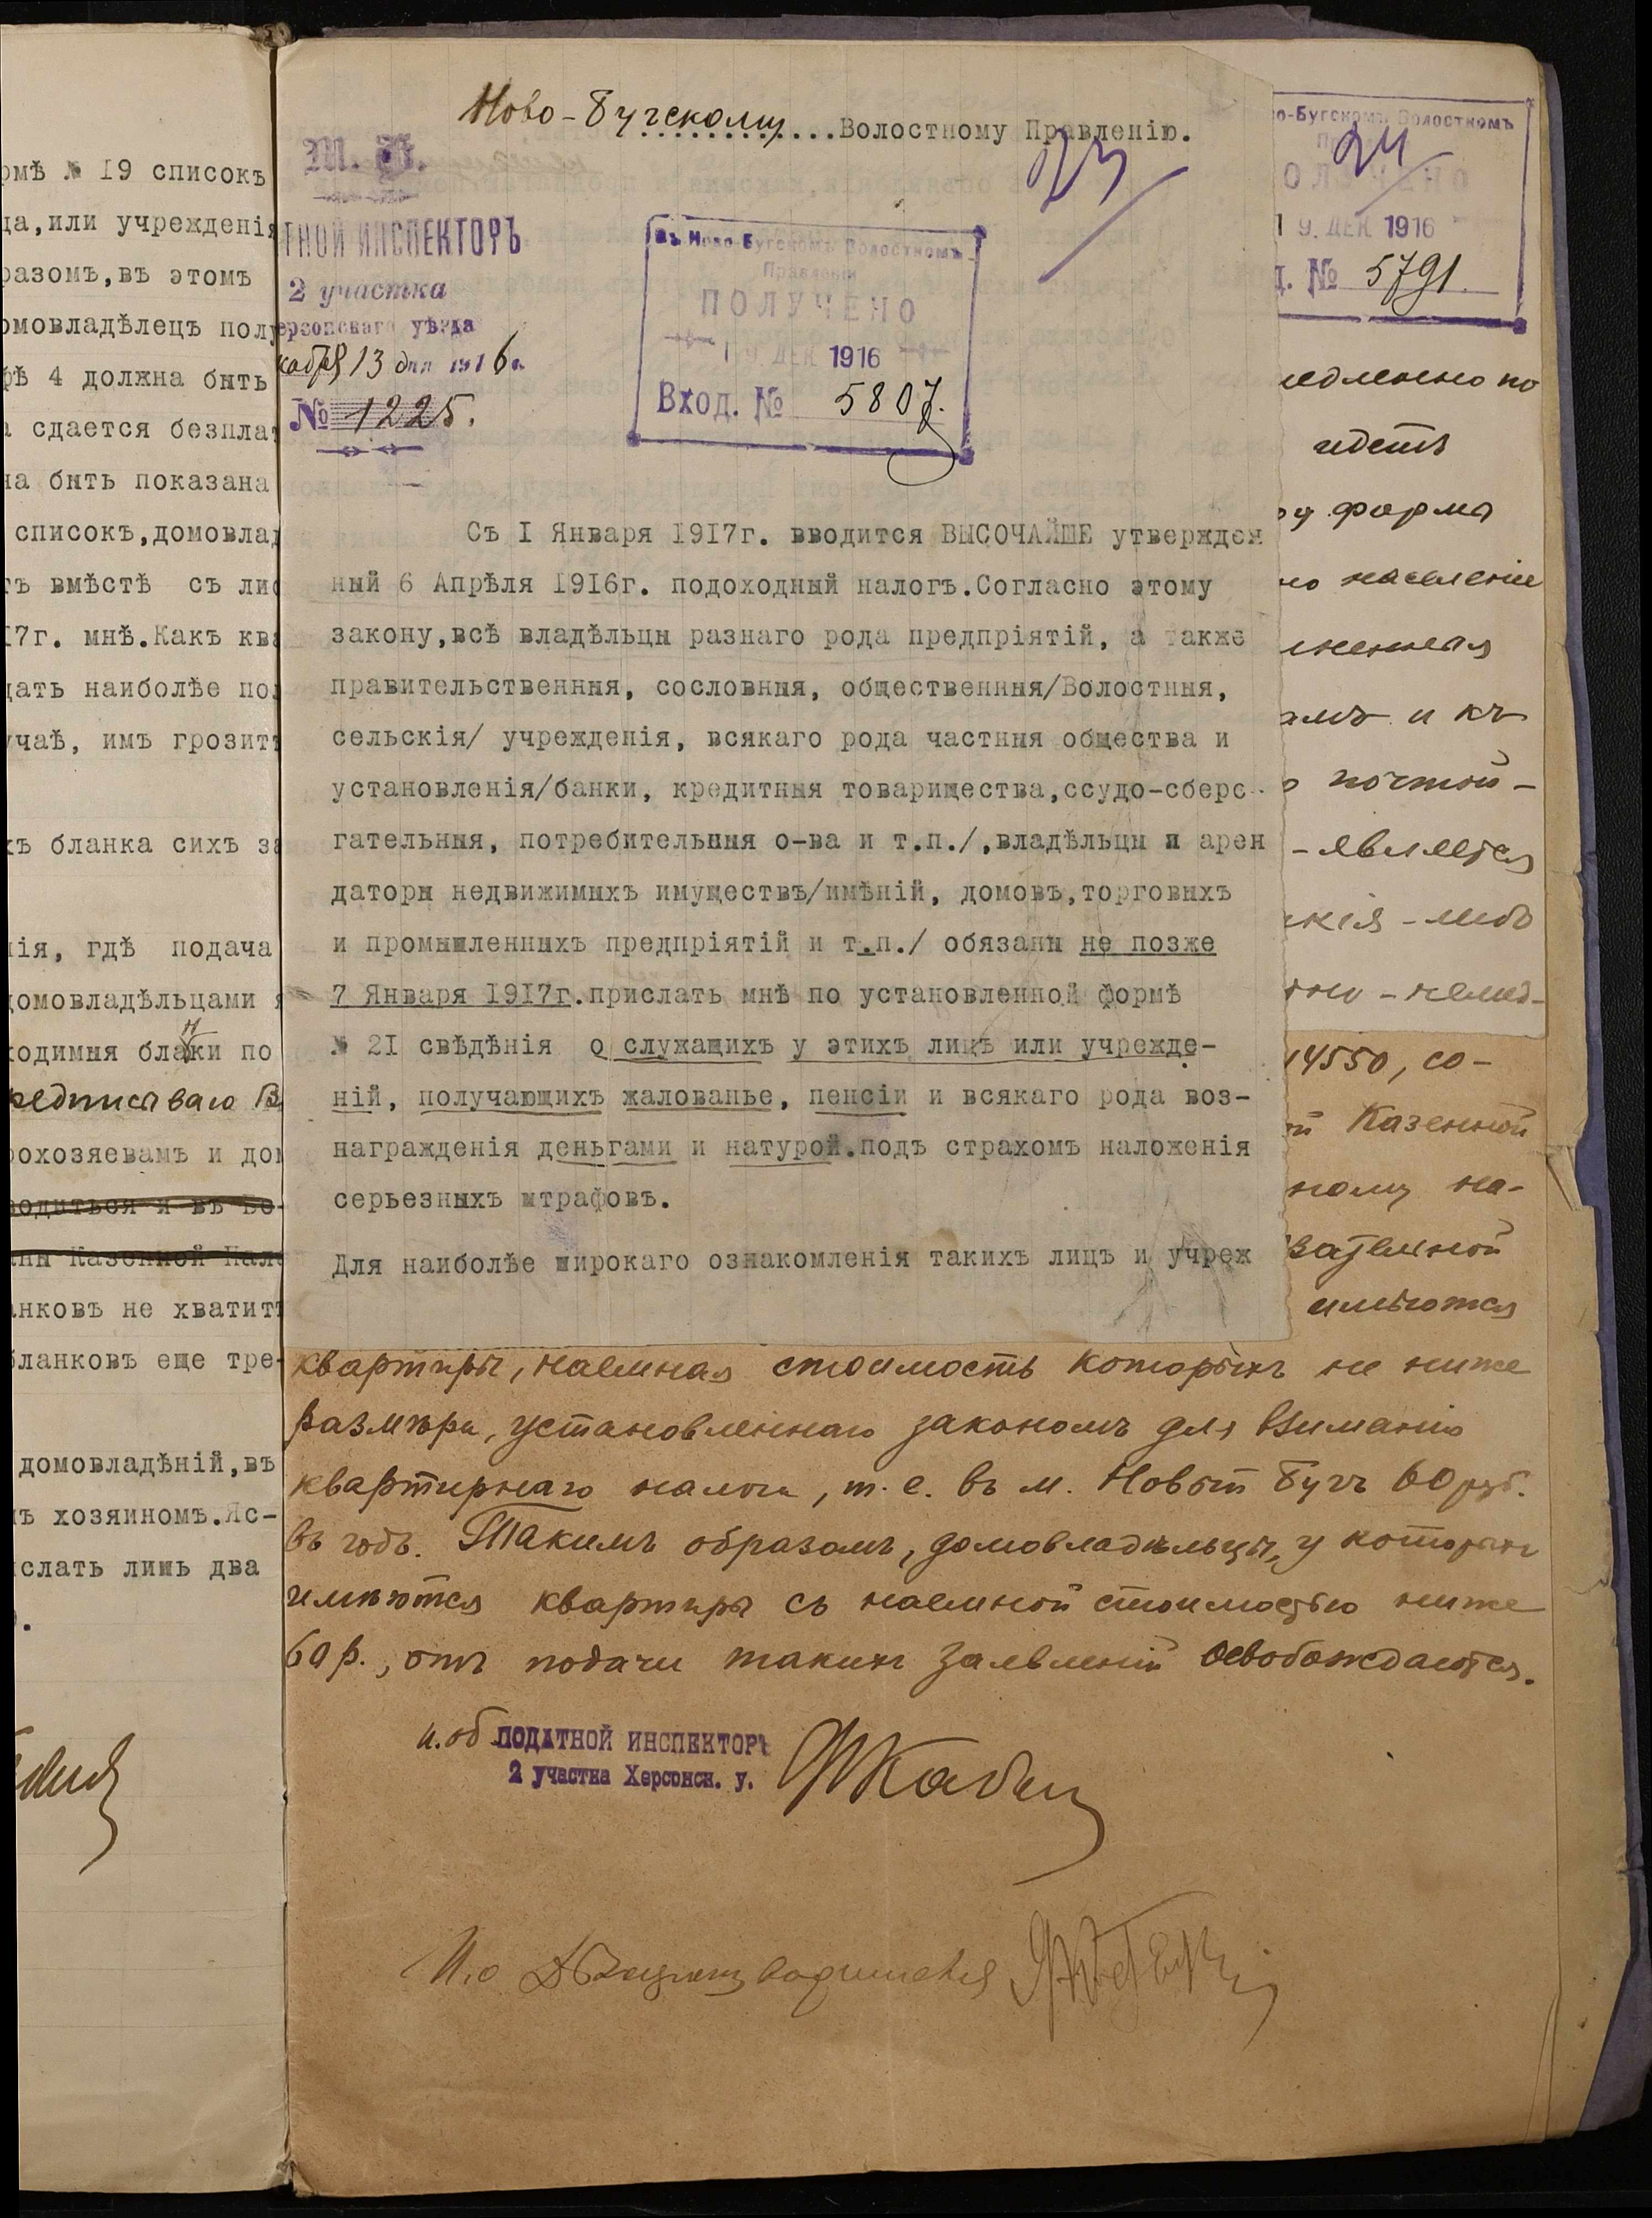 рмѣ № 19 списокъ
ца,или учрежденія
разомъ,въ этомъ
омовладѣлецъ полу
фѣ 4 должна быть
а сдается безплат
на быть показана
списокъ,домовлад
тъ вмѣстѣ съ лис
17г. мнѣ.Какъ ква
дать наиболѣе пол
учаѣ, имъ грозитъ
хъ бланка сихъ за
нія, гдѣ подача
домовладѣльцами я
ходимыя бланки по
редписываю В
рохозяевамъ и дом
водиться и въ Во-
ны Казенной Пала
анковъ не хватитъ
бланковъ еще тре-
домовладѣній,въ
мъ хозяиномъ.Яс-
ислать лишь два
Ново-Бугскому...Волостному Правленію.
23
М. Ф.
ТНОЙ ИНСПЕКТОРЪ
2 участка
ерсонскаго уѣзда
кабря 13 дня 1916 г.
№ 1225.
Въ Ново-Бугскомъ Волостномъ
Правленіи
ПОЛУЧЕНО
19. ДЕК 1916
Вход. № 5807.
Съ I Января 1917г. вводится ВЫСОЧАЙШЕ утвержден
ный 6 Апрѣля 1916г. подоходный налогъ.Согласно этому
закону,всѣ владѣльцы разнаго рода предпріятій, а также
правительственныя, сословныя, общественныя/Волостныя,
сельскія/ учрежденія, всякаго рода частныя общества и
установленія/банки, кредитныя товарищества,ссудо-сберс-
гательныя, потребительныя о-ва и т.п./,владѣльцы и арен
даторы недвижимыхъ имуществъ/имѣній, домовъ,торговыхъ
и промышленныхъ предпріятій и т.п./ обязаны не позже
7 Января 1917г.прислать мнѣ по установленной формѣ
№ 2I свѣдѣнія о служащихъ у этихъ лицъ или учрежде-
ній, получающихъ жалованье, пенсіи и всякаго рода воз-
награжденія деньгами и натурой.подъ страхомъ наложенія
серьезныхъ штрафовъ.
Для наиболѣе широкаго ознакомленія такихъ лицъ и учреж
о-Бугскомъ Волостномъ
24
ПОЛУЧЕНО
19. ДЕК 1916
д. № 5791.
медленно по
идетъ
форма
населеніе
амъ и къ
почтой-
-является
акія-либо
14550, со-
Казенной
ному на-
имѣются
квартиры, наемная стоимость которыхъ не ниже
размѣра, установленнаго закономъ для взиманія
квартирнаго налога, т.е. въ м. Новый Бугъ 60 руб.
въ годъ. Такимъ образомъ, домовладѣльцы, у которыхъ
имѣются квартиры съ наемной стоимостью ниже
60 р., отъ подачи такихъ заявленій освобождаются.
и.об ПОДАТНОЙ ИНСПЕКТОРЪ
2 участка Херсонск. у.
И.о